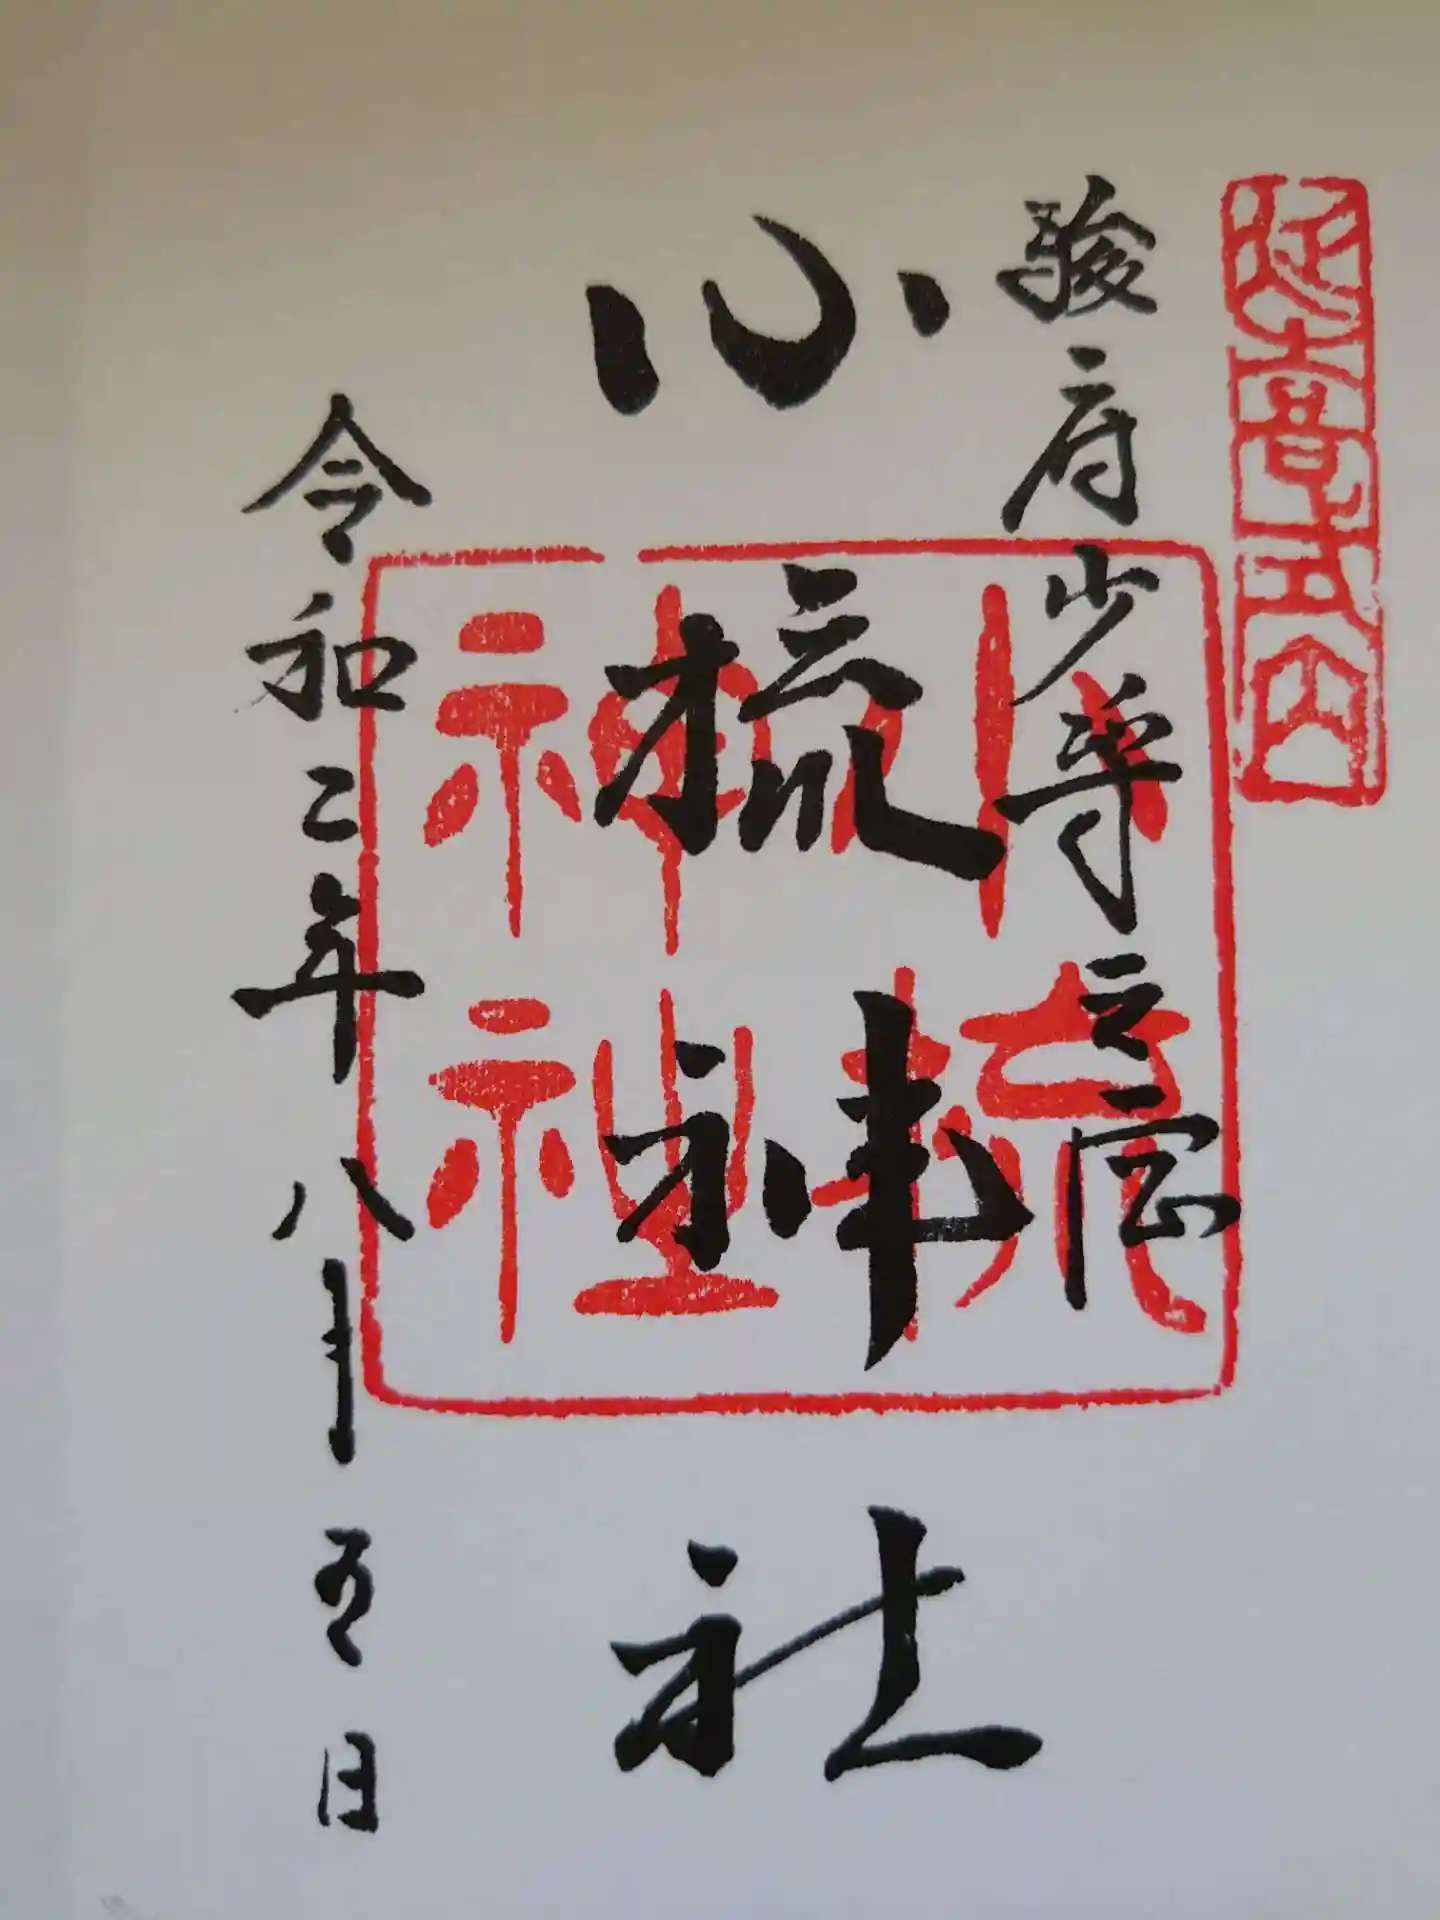 延喜式内
駿府少将之宮
小梳神社
小梳神社
令和二年八月五日